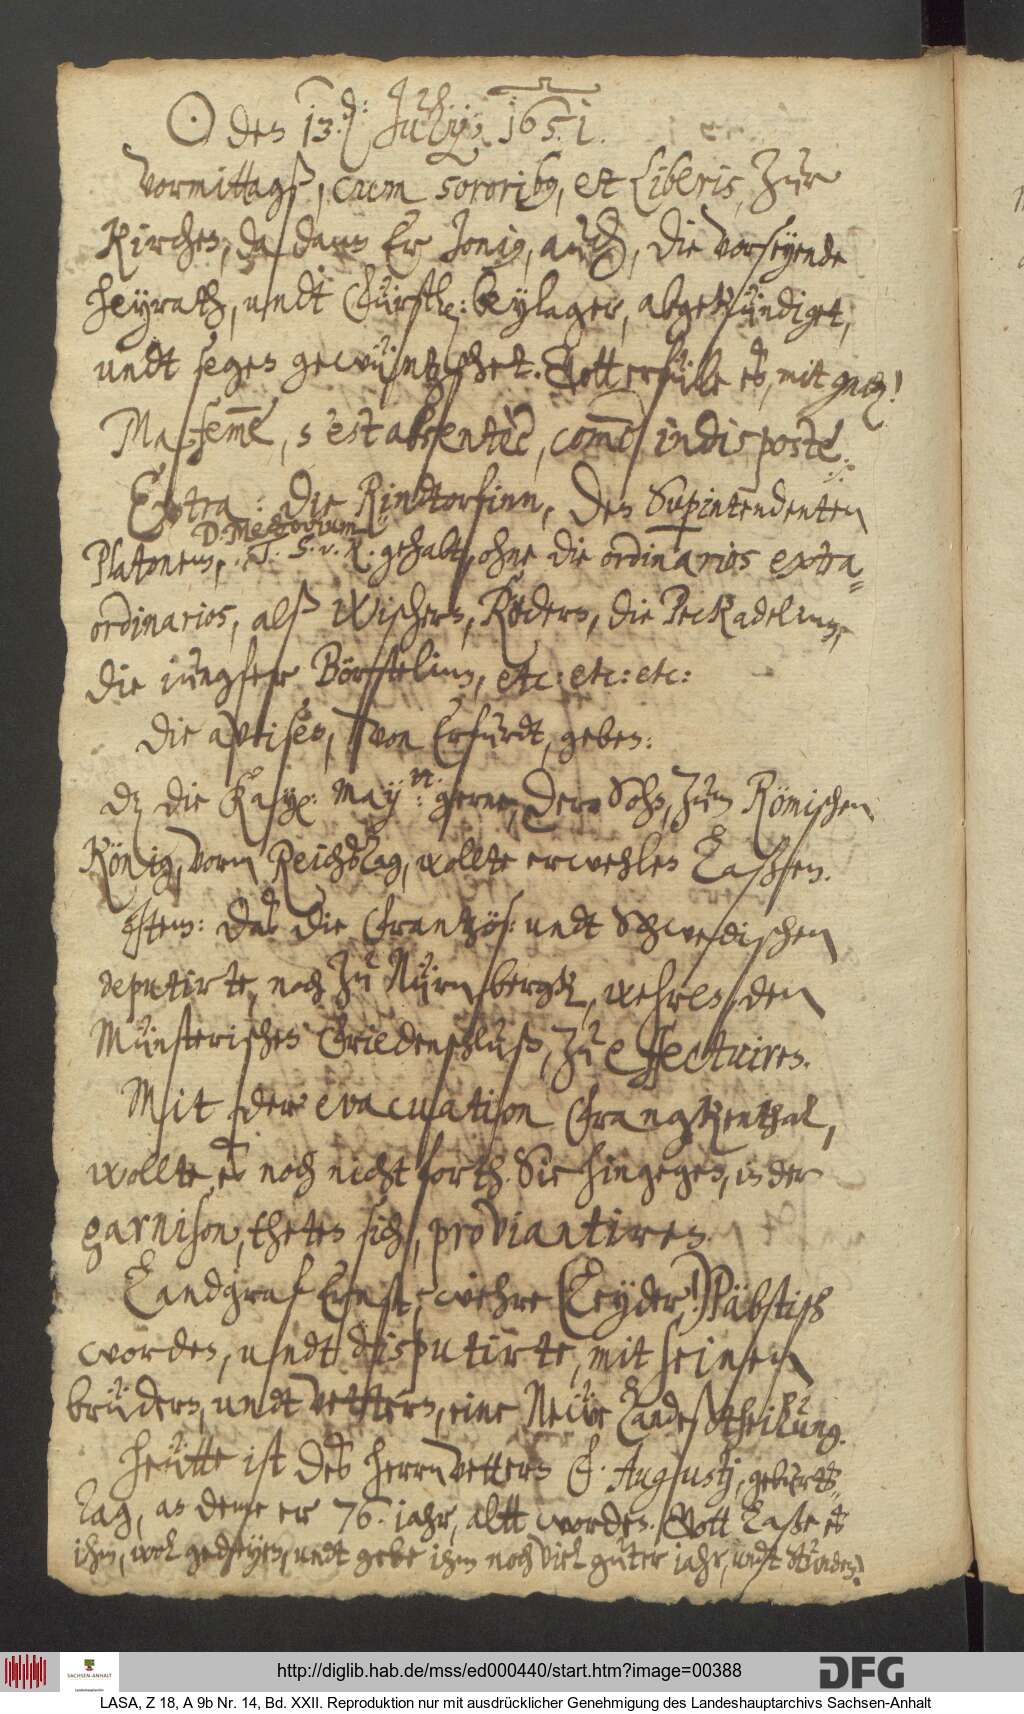 ☉ den 13.d: Julij, 1651.
Vormittagß, cum sororib9, et Liberis, zur
Kirchen, da dann Er Jonig, auch, die vorseyende
heyrath, undt Fürstl: beylager, abgekündiget,
undt segen gewüntzschet. Gott erfülle es, mit
Ma femme, s'est absenteè, comme indisposte.
Extra: die Rindtorfinn, Den Supintendenten
D. Mechovium
Platonem, J. S. v. R. gehabt, ohne die ordinarios extra-
ordinarios, alß Wischers, Röders, die Peckadelinn,
die iungfer Börstelinn, etc: etc: etc:
Die avisen, von Erfurdt, geben:
dz die Kayß: May:tt: gerne, Dero Sohn, zum Römischen
König, vorm Reichstag, wollte erwehlen Laßen.
Item: das die Frantzös: undt Schwedischen
deputirte, noch zu Nürnbergk, wehren, den
Münsterischen Friedenschluß, zu effectuiren.
Mit der evacuation Frangkenthal,
wollte, es noch nicht forth. Sie hingegen, in der
garnison, theten sich, proviantiren.
Landgraf Ernst, wehre (Leyder!) Päbstisch
worden, undt disputirte, mit seinen
brüdern, undt Vettern, eine Neue Landeßtheilung.
Heütte ist des herrnvetters F. Augustj, geburts-
Tag, an deme er 76. iahr, altt worden. Gott Laße es
ihm, wol gedeyen, undt gebe ihm noch viel guter iahr, undt stunden!
http://diglib.hab.de/mss/ed000440/start.htm?image=00388
SACHSEN-ANHALT
DFG
LASA, Z 18, A 9b Nr. 14, Bd. XXII. Reproduktion nur mit ausdrücklicher Genehmigung des Landeshauptarchivs Sachsen-Anhalt